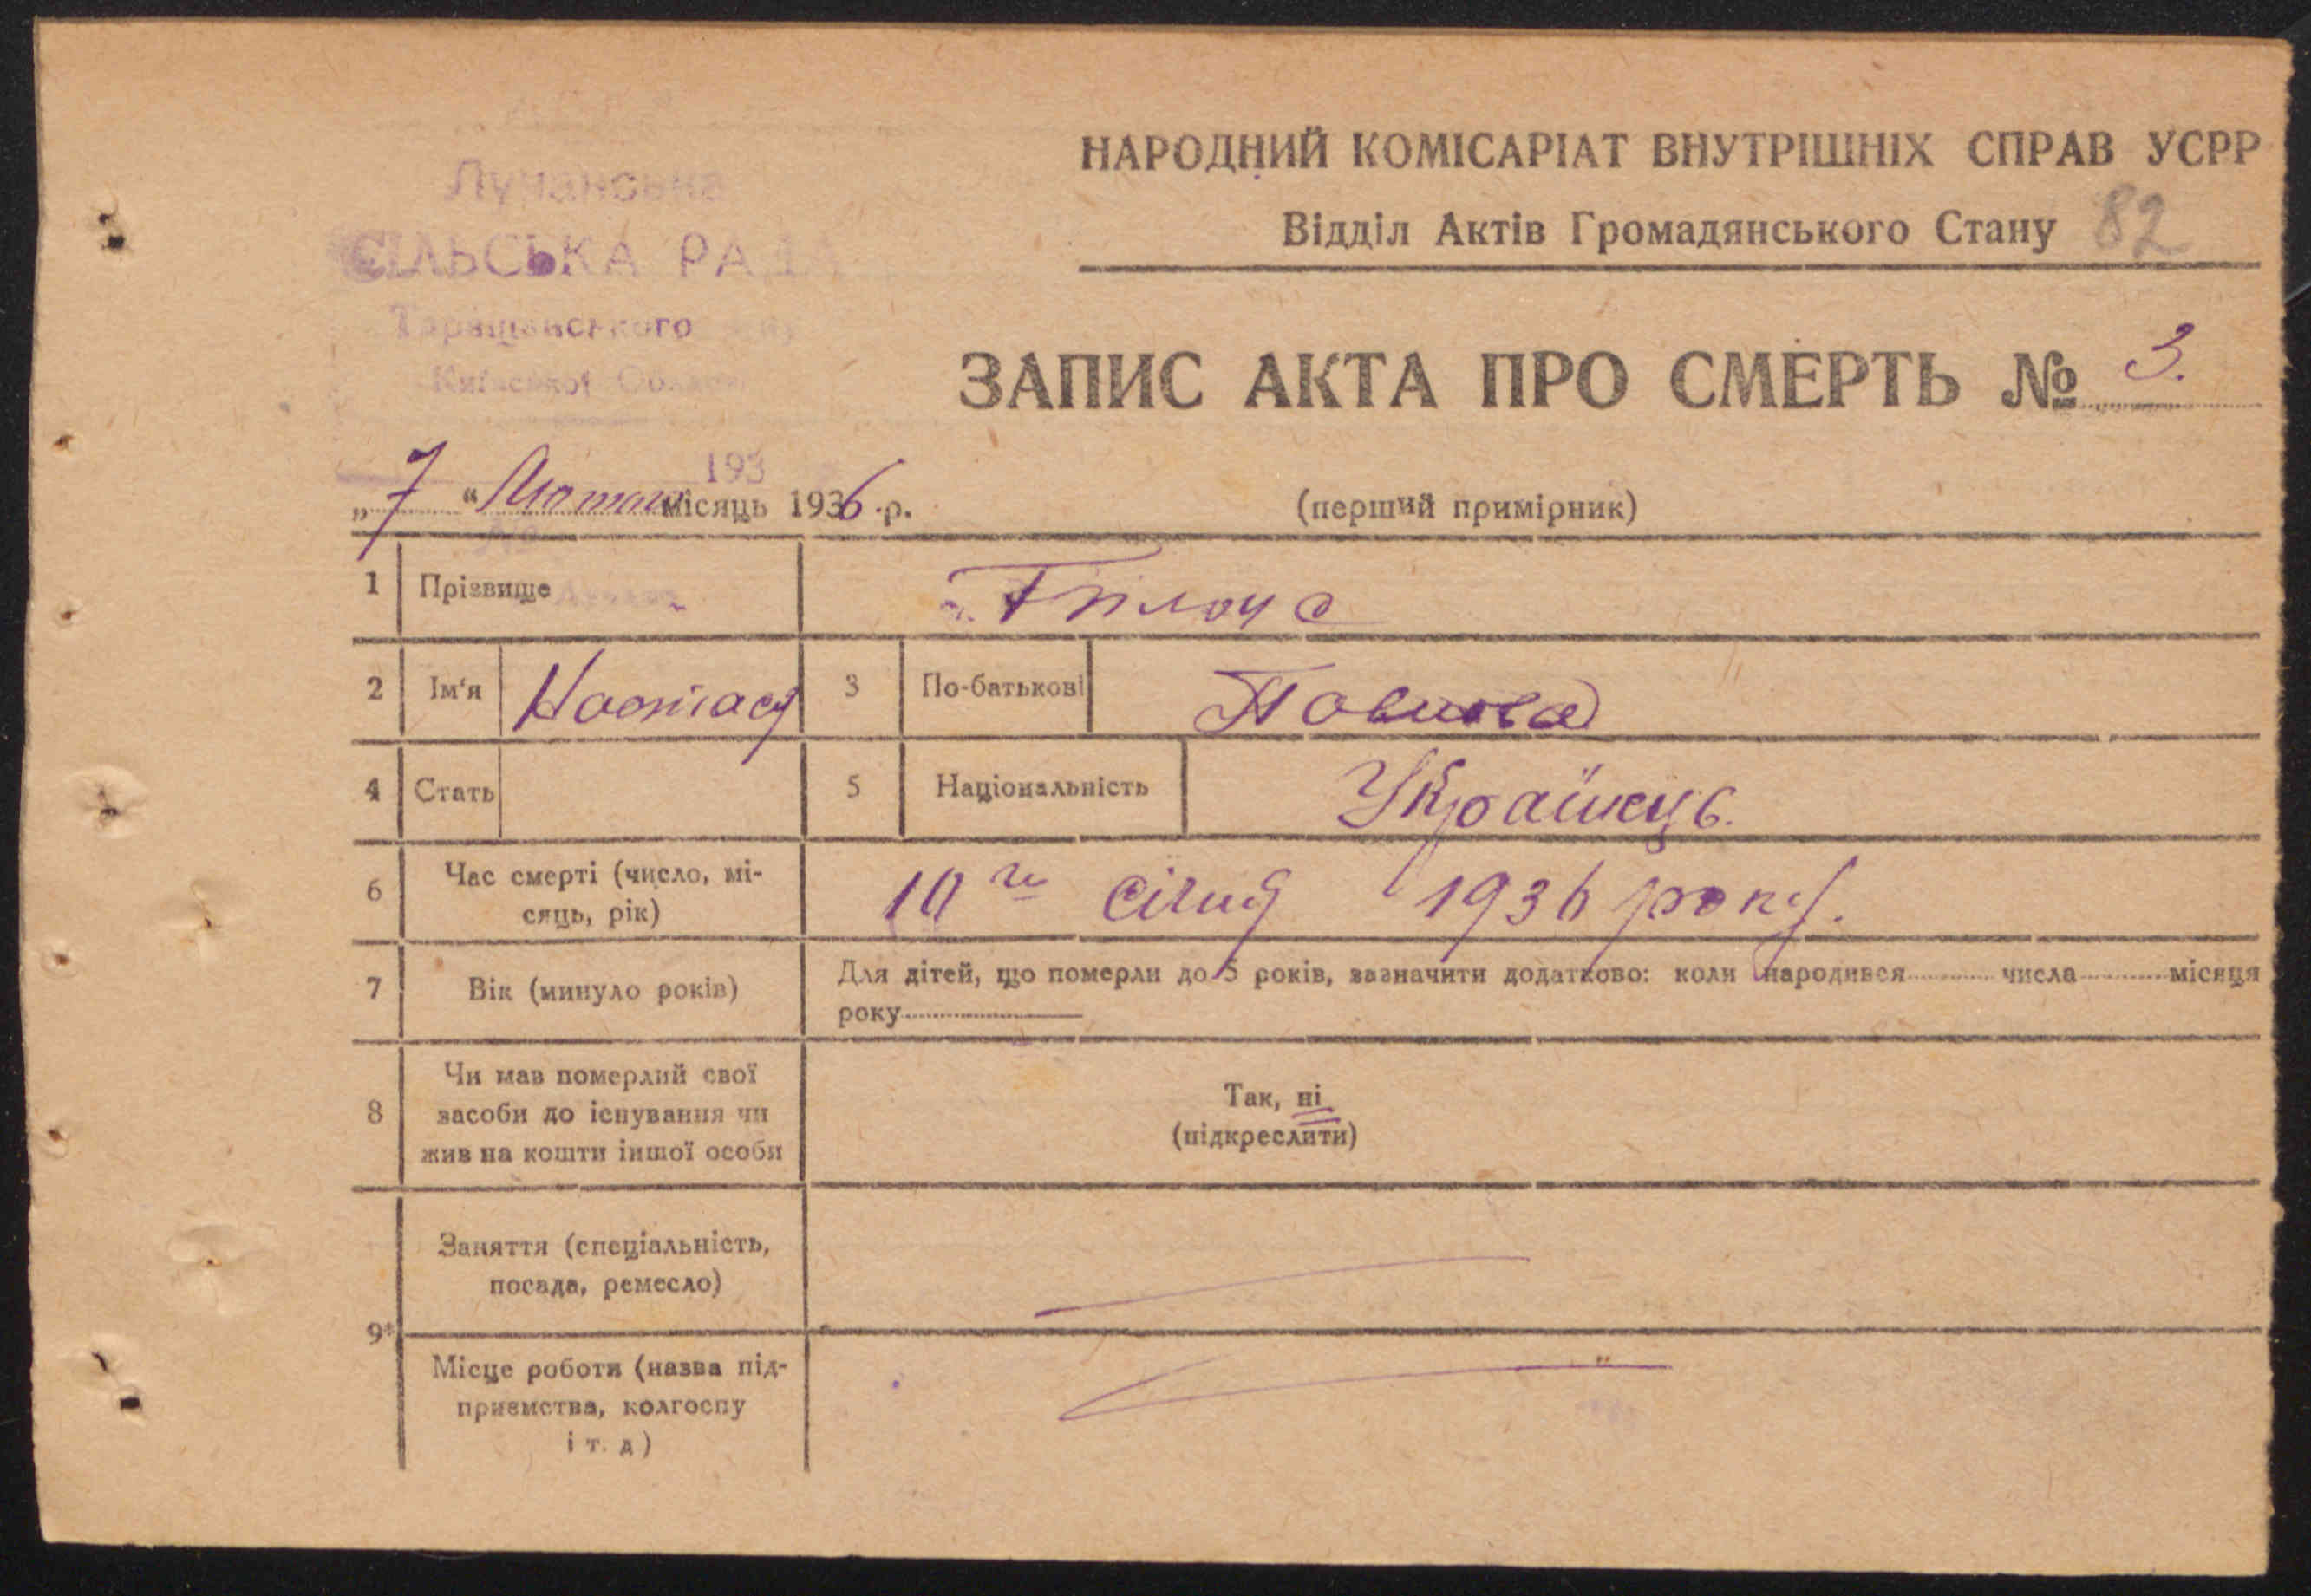 Лучанська
СІЛЬСЬКА РАДА
Таращанського
Київської Області
193
НАРОДНИЙ КОМІСАРІАТ ВНУТРІШНІХ СПРАВ УСРР
Відділ Актів Громадянського Стану 82
ЗАПИС АКТА ПРО СМЕРТЬ № 3.
„7“ Лютого місяць 1936 р.
(перший примірник)
1 Прізвище
2 Ім'я Настася 3 По-батькові Павлова
4 Стать 5 Національність Українець.
6 Час смерті (число, мі-
сяць, рік)
10го Січня 1936 року.
7 Вік (минуло років)
Для дітей, що померли до 5 років, зазначити додатково: коли народився числа місяця
року
8 Чи мав померлий свої
засоби до існування чи
жив на кошти іншої особи
Так, ні
(підкреслити)
9* Заняття (спеціальність,
посада, ремесло)
Місце роботи (назва під-
приємства, колгоспу
і т. д)